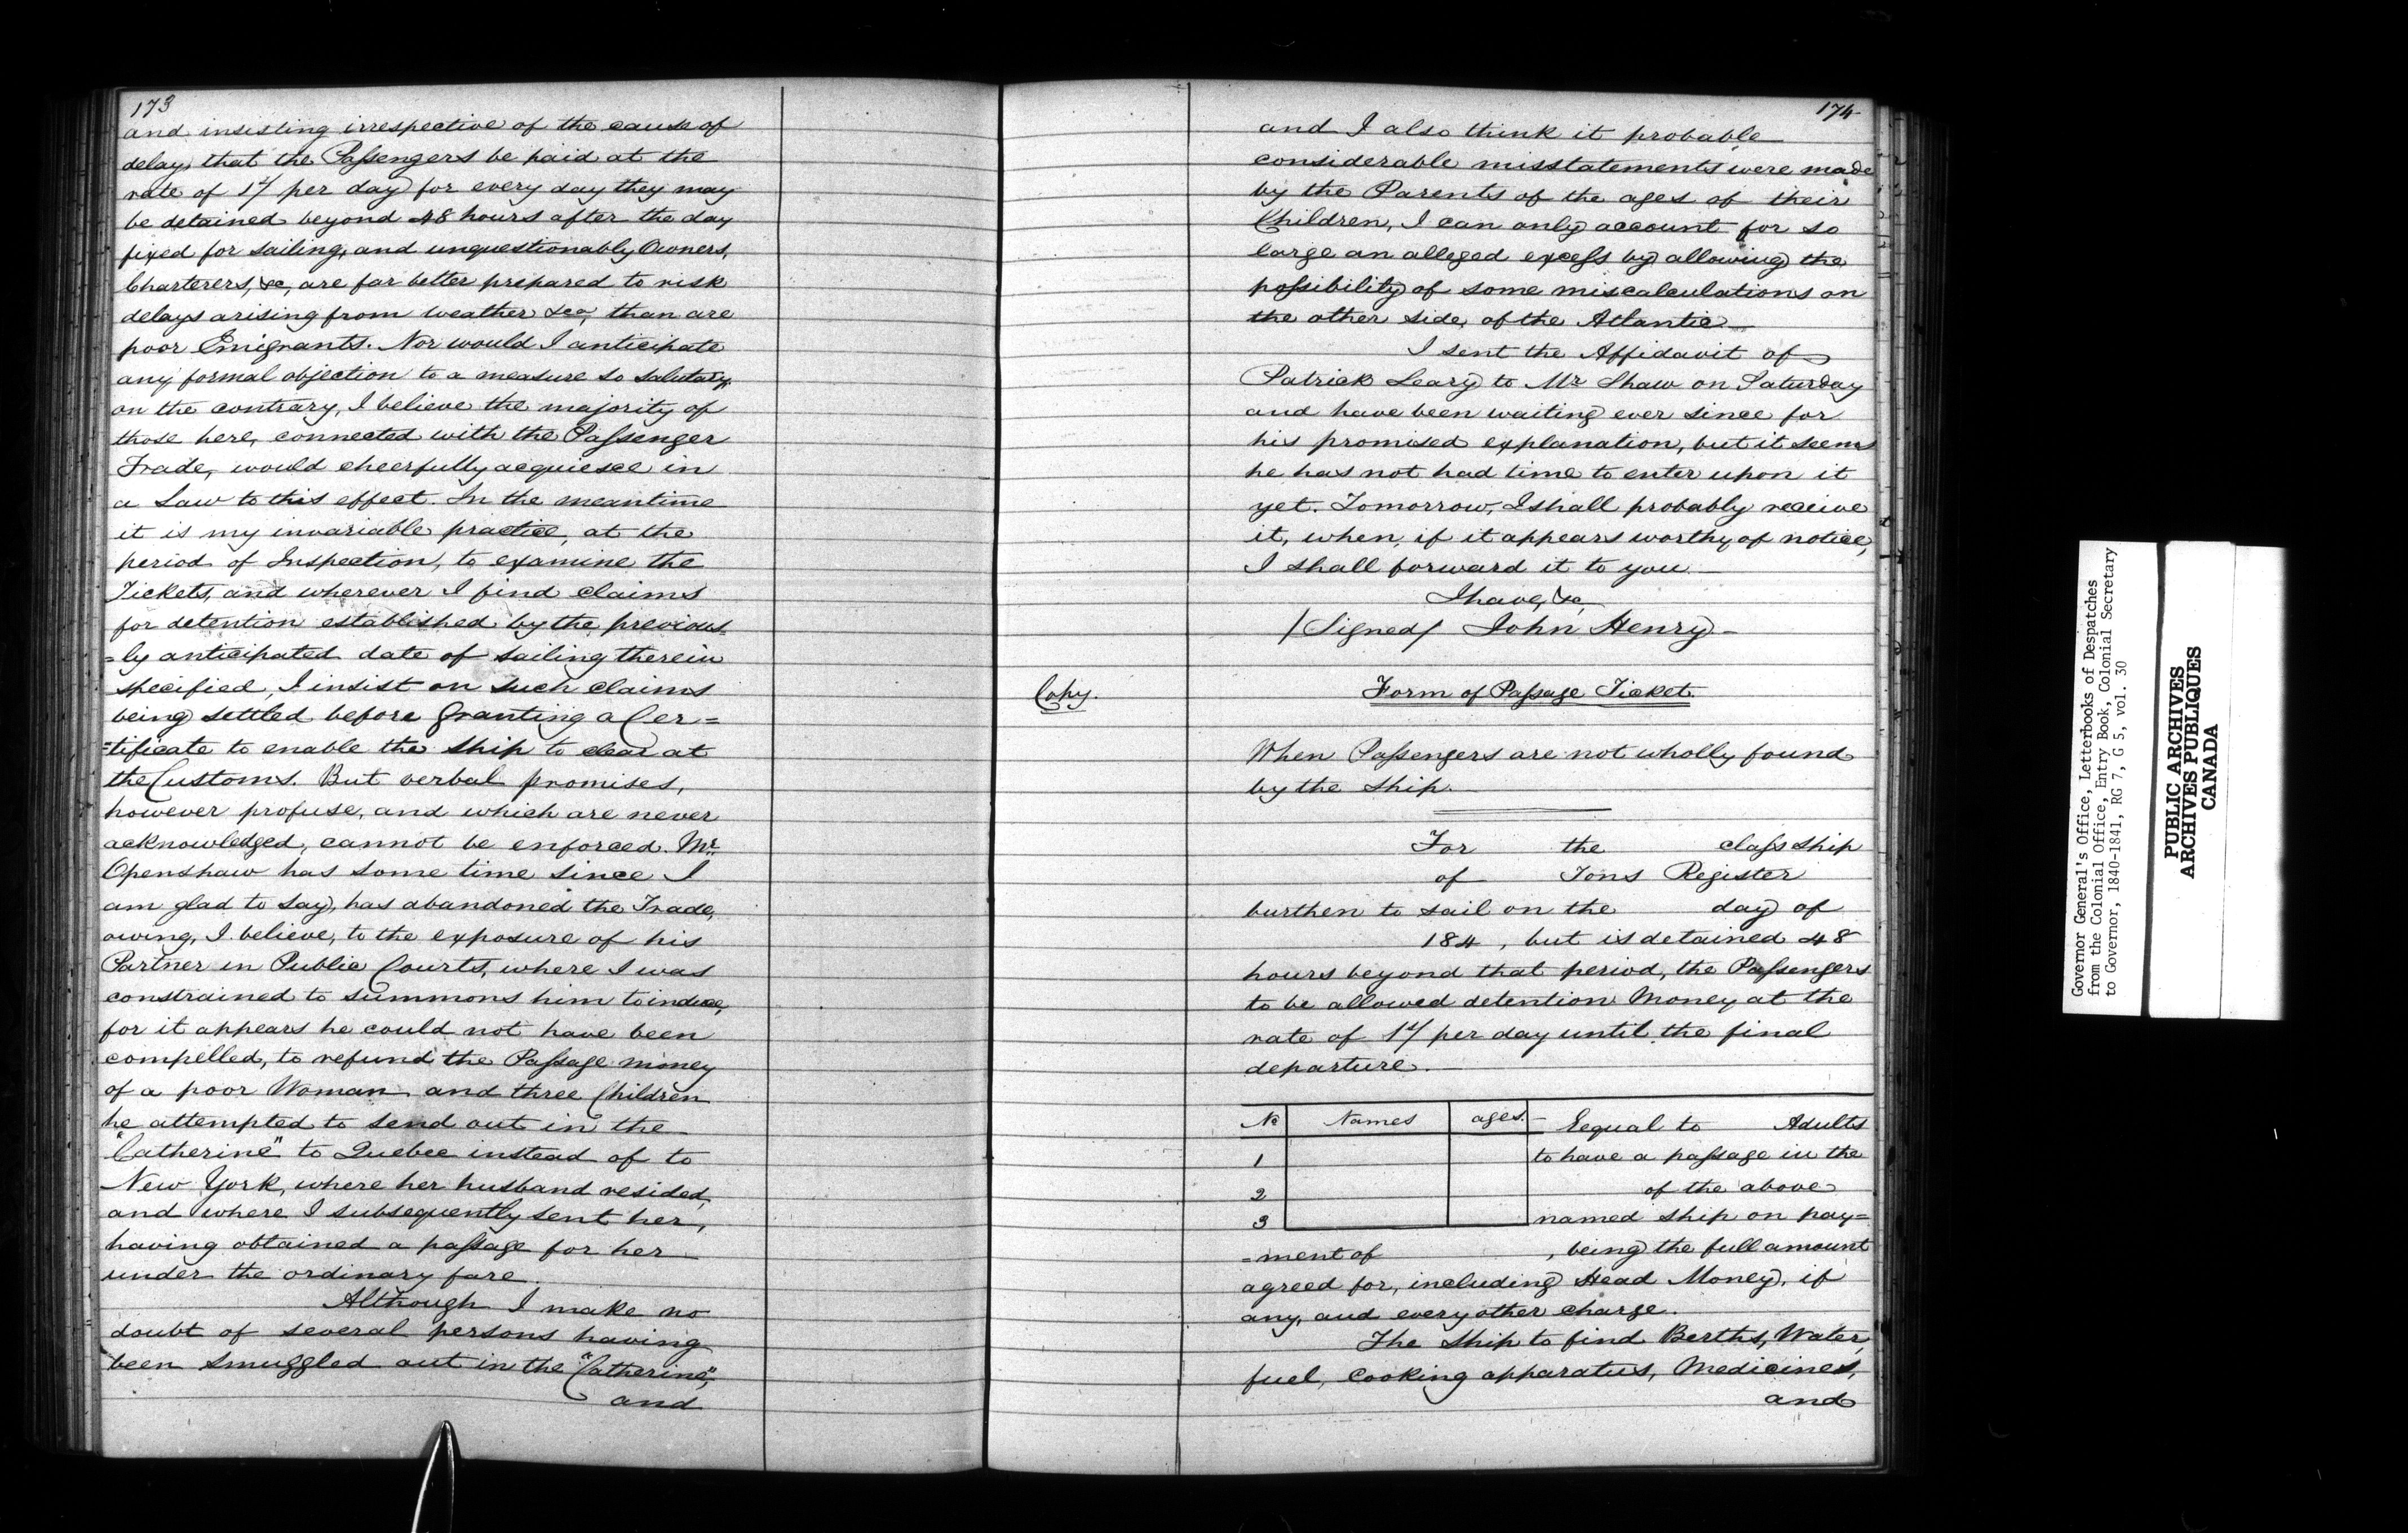 173
and insisting irrespective of the cause of
delay, that the Passengers be paid at the
rate of 1s/ per day for every day they may
be detained beyond 48 hours after the day
fixed for sailing, and unquestionably Owners,
Charterers, &c, are far better prepared to risk
delays arising from weather &c, than are
poor Emigrants. Nor would I anticipate
any formal objection to a measure so salutary,
on the contrary, I believe the majority of
those here, connected with the Passenger
Trade, would cheerfully acquiesce in
a Law to this effect. In the meantime
it is my invariable practice, at the
period of Inspection, to examine the
Tickets, and wherever I find claims
for detention established by the previous
=ly anticipated date of sailing therein
specified, I insist on such claims
being settled before granting a Cer=
=tificate to enable the ship to clear at
the Customs. But verbal promises,
however profuse, and which are never
acknowledged, cannot be enforced. Mr.
Openshaw has some time since I
am glad to say, has abandoned the Trade,
owing, I believe, to the exposure of his
Partner in Public Courts, where I was
constrained to summons him to induce,
for it appears he could not have been
compelled, to refund the Passage money
of a poor Woman and three Children
he attempted to send out in the
"Catherine" to Quebec instead of to
New York, where her husband resided,
and where I subsequently sent her,
having obtained a passage for her
under the ordinary fare.
Although I make no
doubt of several persons having
been smuggled out in the "Catherine",
and
174
and I also think it probable
considerable misstatements were made
by the Parents of the ages of their
Children, I can only account for so
large an alleged excess by allowing the
possibility of some miscalculations on
the other side, of the Atlantic—
I sent the Affidavit of
Patrick Leary to Mr Shaw on Saturday
and have been waiting ever since for
his promised explanation, but it seems
he has not had time to enter upon it
yet. Tomorrow, I shall probably receive
it, when, if it appears worthy of notice,
I shall forward it to you—
I have, &c,
/Signed/ John Henry—
Copy. Form of Passage Ticket
When Passengers are not wholly found
by the Ship.—
For the class ship
of Tons Register
burthen to sail on the day of
184 , but is detained 48
hours beyond that period, the Passengers
to be allowed detention Money at the
rate of 1s/ per day until the final
departure.—
No Names ages.— Eequal to Adults
1 to have a passage in the
2 of the above
3 named ship on pay=
=ment of , being the full amount
agreed for, including Head Money, if
any, and every other charge.
The Ship to find Berths, Water,
fuel, Cooking apparatus, Medicines,
and
Governor General's Office, Letterbooks of Despatches
from the Colonial Office, Entry Book, Colonial Secretary
to Governor, 1840-1841, RG 7, G 5, vol. 30
PUBLIC ARCHIVES
ARCHIVES PUBLIQUES
CANADA